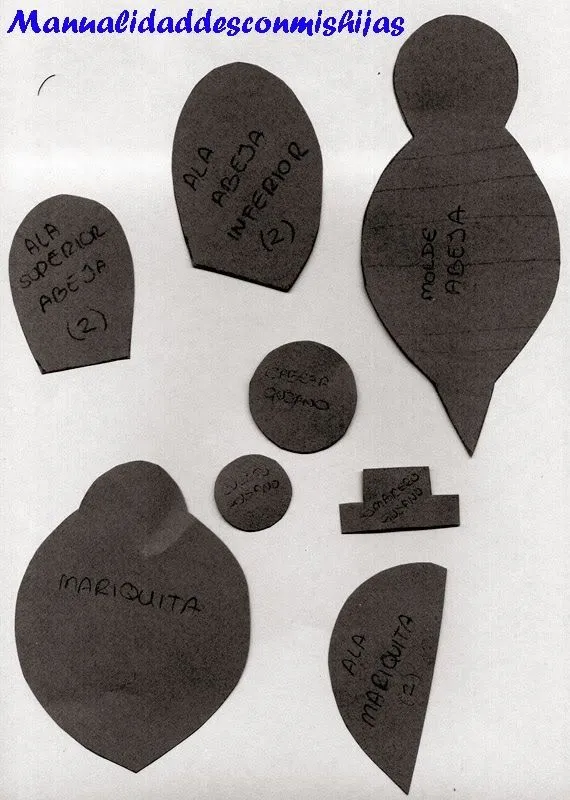 Manualidaddesconmishijas
ALA
ABEJA
INFERIOR
(2)
MOLDE
ABEJA
ALA
SUPERIOR
ABEJA
(2)
CABEZA
GUSANO
GUSANO
SOMBRERO
GUSANO
MARIQUITA
ALA
MARIQUITA
(2)